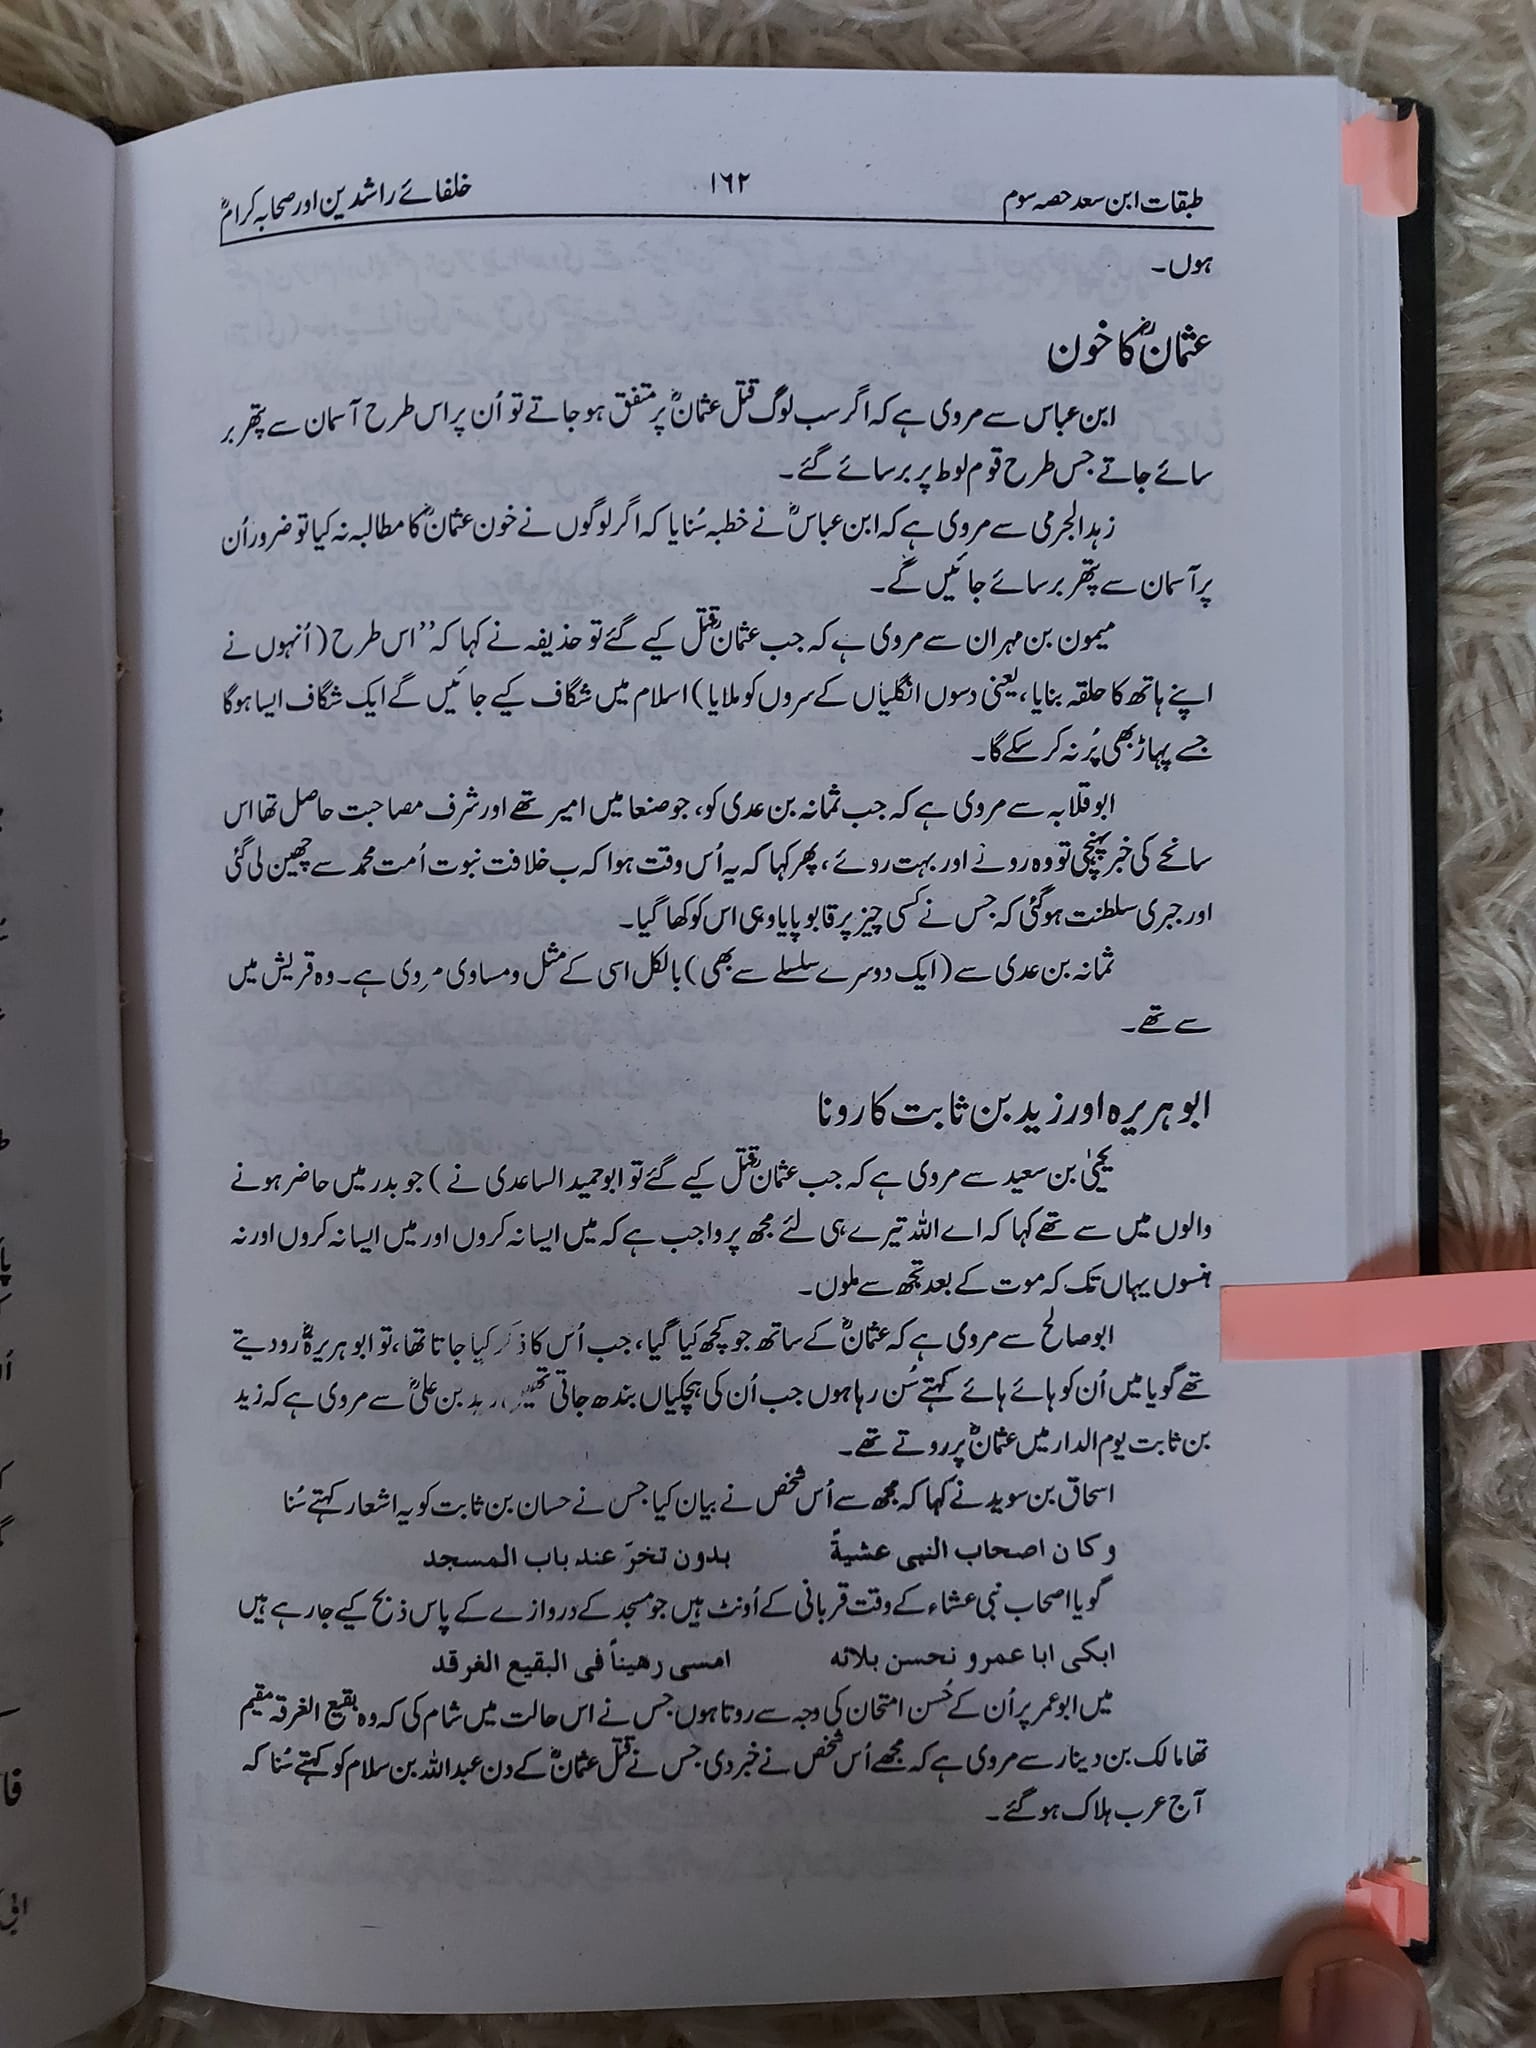 طبقات ابن سعد حصہ سوم ۱۶۲ خلفائے راشدین اور صحابہ کرامؓ
ہوں۔
عثمانؓ کا خون
ابن عباس سے مروی ہے کہ اگر سب لوگ قتل عثمانؓ پر متفق ہو جاتے تو اُن پر اس طرح آسمان سے پتھر بر
سائے جاتے جس طرح قوم لوط پر برسائے گئے۔
زہد الجرمی سے مروی ہے کہ ابن عباسؓ نے خطبہ سُنایا کہ اگر لوگوں نے خون عثمانؓ کا مطالبہ نہ کیا تو ضرور اُن
پر آسمان سے پتھر برسائے جائیں گے۔
میمون بن مہران سے مروی ہے کہ جب عثمانؓ قتل کیے گئے تو حذیفہ نے کہا کہ ’’اس طرح (اُنہوں نے
اپنے ہاتھ کا حلقہ بنایا، یعنی دسوں انگلیاں کے سروں کو ملایا) اسلام میں شگاف کیے جائیں گے ایک شگاف ایسا ہوگا
جسے پہاڑ بھی پُر نہ کر سکے گا۔
ابو قلابہ سے مروی ہے کہ جب ثمانہ بن عدی کو، جو صنعا میں امیر تھے اور شرف مصاحبت حاصل تھا اس
سانحے کی خبر پہنچی تو وہ روئے اور بہت روئے، پھر کہا کہ یہ اُس وقت ہوا کہ ب خلافت نبوت اُمت محمد سے چھین لی گئی
اور جبری سلطنت ہوگئی کہ جس نے کسی چیز پر قابو پایا وہی اس کو کھا گیا۔
ثمانہ بن عدی سے (ایک دوسرے سلسلے سے بھی) بالکل اسی کے مثل و مساوی مروی ہے۔ وہ قریش میں
سے تھے۔
ابو ہریرہ اور زید بن ثابت کا رونا
یحییٰ بن سعید سے مروی ہے کہ جب عثمانؓ قتل کیے گئے تو ابو حمید الساعدی نے ) جو بدر میں حاضر ہونے
والوں میں سے تھے کہا کہ اے اللہ تیرے ہی لئے مجھ پر واجب ہے کہ میں ایسا نہ کروں اور میں ایسا نہ کروں اور نہ
ہنسوں یہاں تک کہ موت کے بعد تجھ سے ملوں۔
ابو صالح سے مروی ہے کہ عثمانؓ کے ساتھ جو کچھ کیا گیا، جب اُس کا ذکر کیا جاتا تھا، تو ابو ہریرہؓ رو دیتے
تھے گویا میں اُن کو ہائے ہائے کہتے سُن رہا ہوں جب اُن کی ہچکیاں بندھ جاتی تھیں، زید بن علیؓ سے مروی ہے کہ زید
بن ثابت یوم الدار میں عثمانؓ پر روتے تھے۔
اسحاق بن سوید نے کہا کہ مجھ سے اُس شخص نے بیان کیا جس نے حسان بن ثابت کو یہ اشعار کہتے سُنا
و کان اصحاب النبی عشیةً بدون تخرّ عند باب المسجد
گویا اصحاب نبی عشاء کے وقت قربانی کے اُونٹ ہیں جو مسجد کے دروازے کے پاس ذبح کیے جا رہے ہیں
ابکی ابا عمرو نحسن بلائه امسی رهیناً فی البقیع الغرقد
میں ابو عمر پر اُن کے حُسن امتحان کی وجہ سے روتا ہوں جس نے اس حالت میں شام کی کہ وہ بقیع الغرقہ مقیم
تھا مالک بن دینار سے مروی ہے کہ مجھے اُس شخص نے خبر دی جس نے قتل عثمانؓ کے دن عبداللہ بن سلام کو کہتے سُنا کہ
آج عرب ہلاک ہو گئے۔